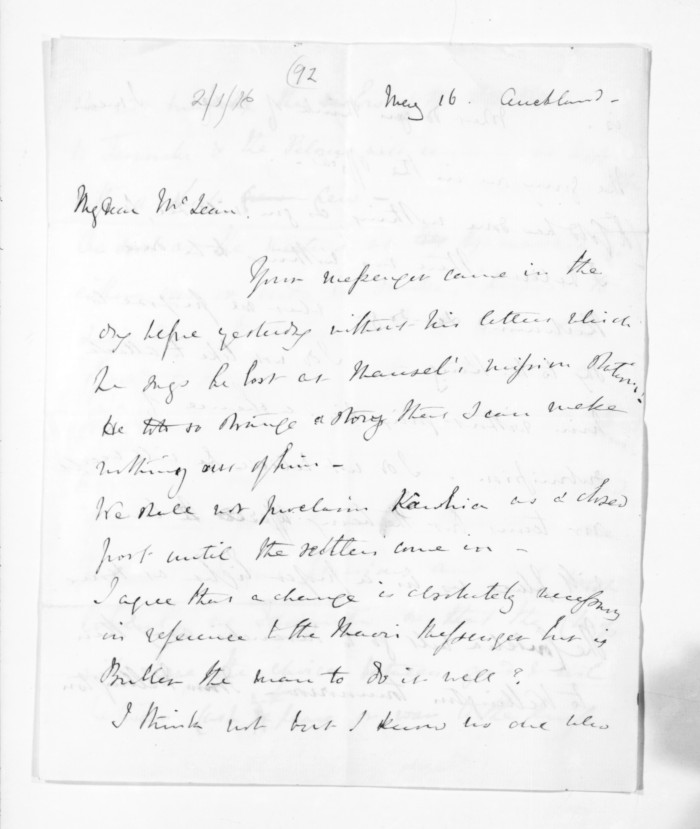 (92
2/1/26
May 16. Auckland -
My dear McLean.
Your messenger came in the
day before yesterday without his letters which
he says he lost at Maunsel's mission station.
He tells so strange a story that I can make
nothing out of him -
We shall not proclaim Kawhia as a closed
port until the settlers come in -
I agree that a change is absolutely necessary
in reference to the Maori Messenger but is
Buller the man to do it well?
I think not but I know no one who